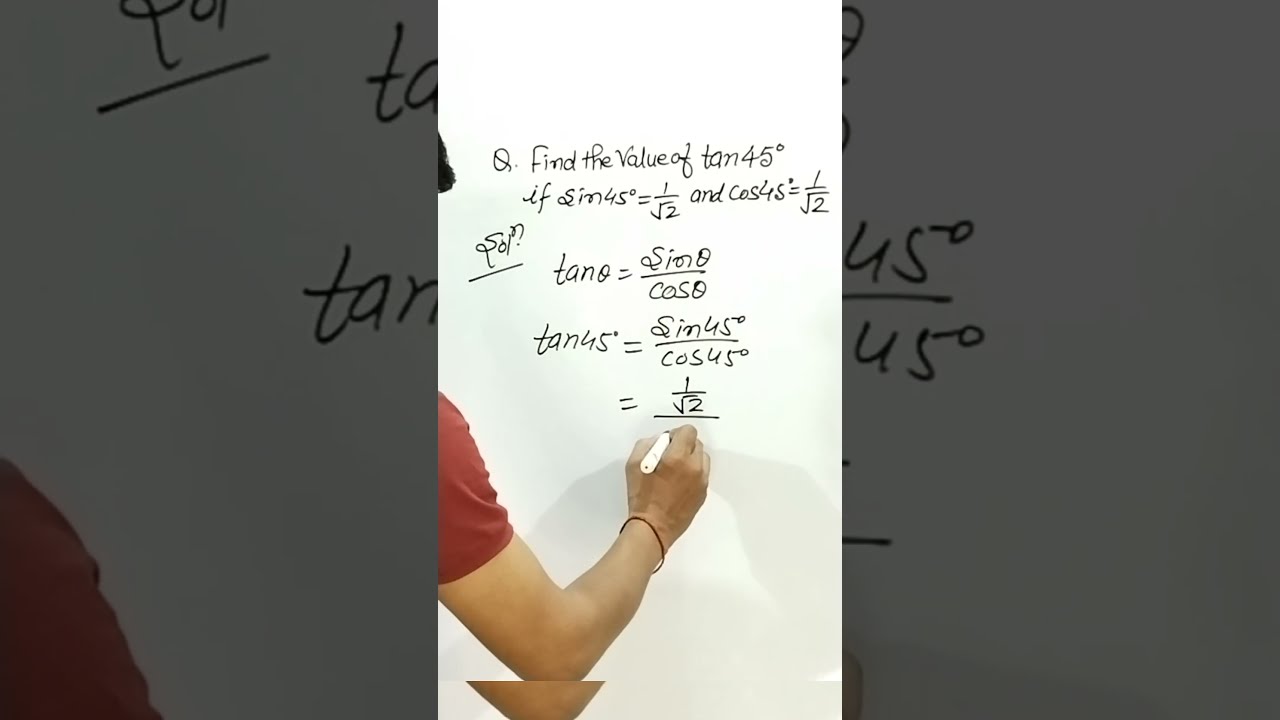 Q. Find the Value of tan45°
if Sin45°=1/√2 and Cos45°=1/√2
Solⁿ.
tanθ = Sinθ/cosθ
tan45° = Sin45°/cos45°
= 1/√2